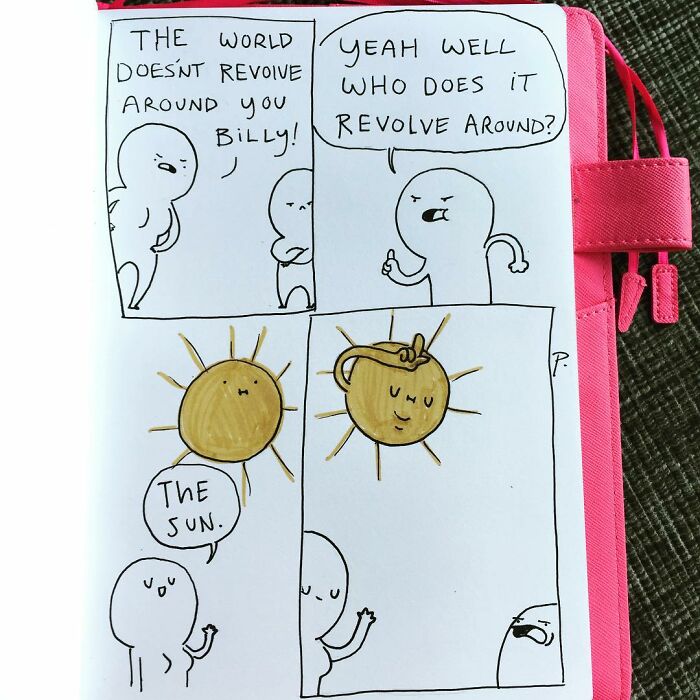 THE WORLD
DOESNT REVOLVE
AROUND YOU
BILLY!
YEAH WELL
WHO DOES IT
REVOLVE AROUND?
THE
SUN.
P.